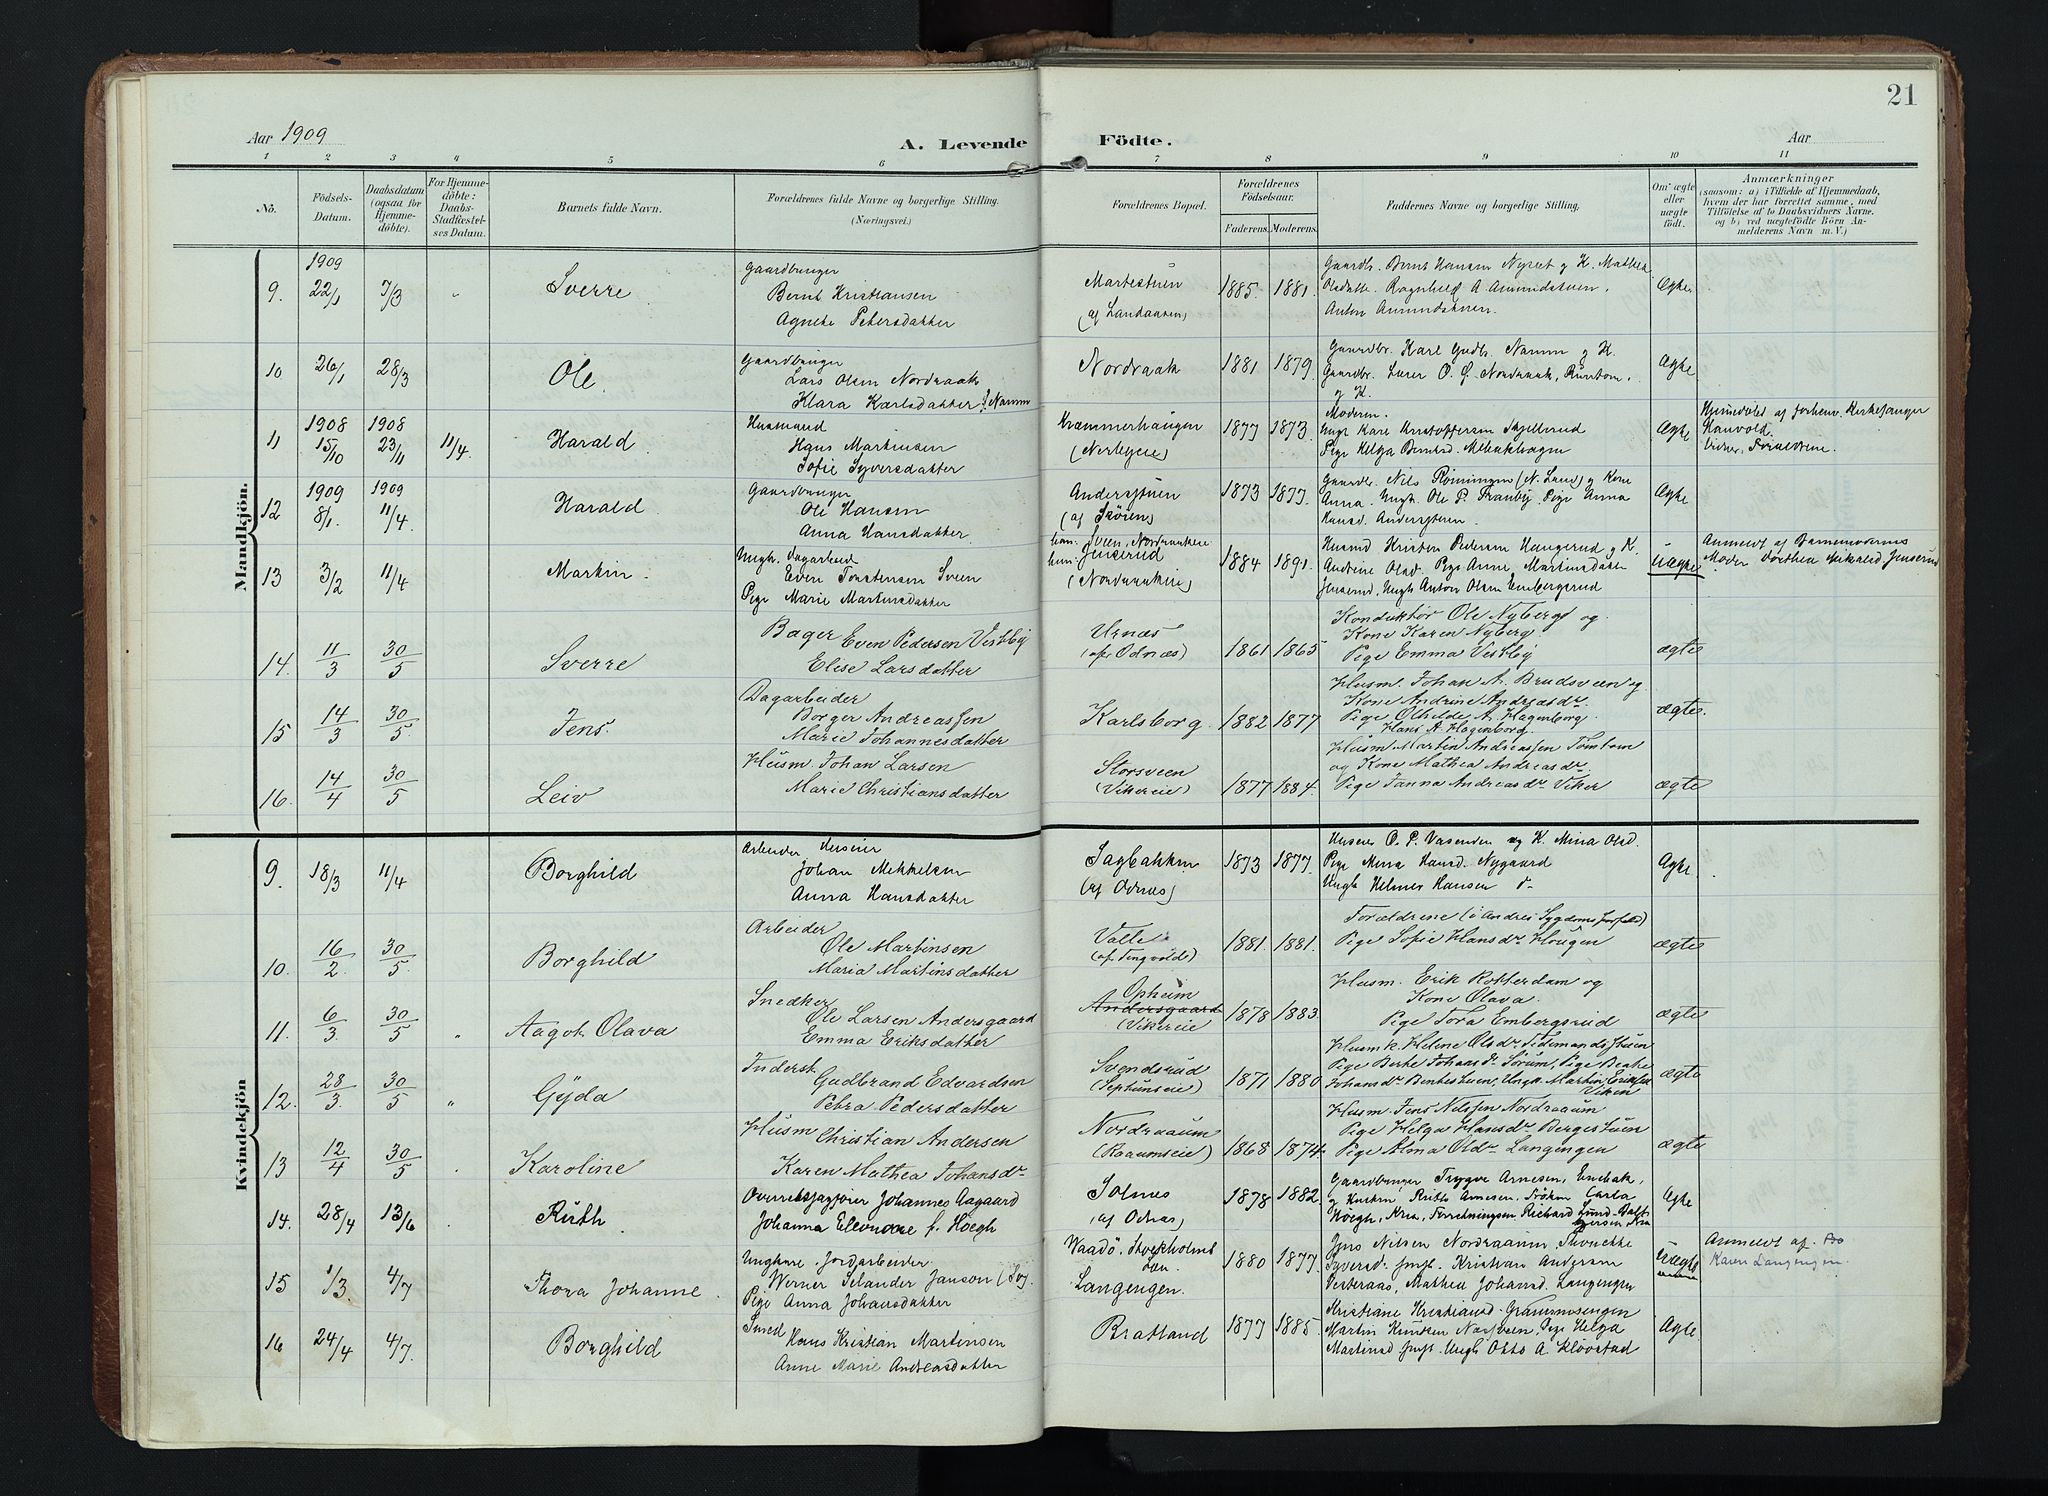 21
Aar 1909
A. Levende
Födte.
Aar
1 2 3 4 5 6 7 8 9 10 11
No.
Födsels-
Datum.
Daabsdatum
(ogsaa for
Hjemme-
döbte).
For Hjemme-
döbte:
Daabs-
Stadfæstel-
ses Datum.
Barnets fulde Navn.
Forældrenes fulde Navne og borgerlige Stilling.
(Næringsvei.)
Forældrenes Bopæl.
Forældrenes
Födselsaar.
Faderens.
Moderens.
Faddernes Navne og borgerlige Stilling.
Om ægte
eller
uægte
födt.
Anmærkninger
(saasom: a) i Tilfælde af Hjemmedaab,
hvem der har forrettet samme, med
Tilföielse af to Daabsvidners Navne,
og b) ved uægtefödte Börn An-
melderens Navn m. V.)
Mandkjön.
9. 1909 22/1 7/3 " Sverre
Gaardbruger
Bernt Kristiansen
Agnete Petersdatter
Martestuen
(af Landaasen)
1885 1881
Gaardb. Bernt Hansen Nyset og K. Mathea
Olsdatter. Ragnhild A. Amundstuen.
Anton Amundstuen.
Ægte
10. 26/1 28/3 Ole.
Gaardbruger
Lars Olsen Nordraak
Klara Karlsdatter f. Namm
Nordraak
1881 1879
Gaardbr. Karl Gudb. Namm og K.
Gaardbr. Lars O. Nordraak,
og K.
Ægte
11 1908 15/10 1908 23/11 11/4 Harald
Husmand
Hans Martinsen
Sofie Syversdatter
Krammerhaugen
(Nerbyeie)
1877 1873
Moderen.
Ungk. Karl Kristoffersen Skjellerud
Pige Helga Berntsd. Melbakhagen
Ægte
Hjemdöbt af forhenv. Kirkesanger
Hauvold.
Vidner. Forældrene.
12 1909 8/1. 1909 11/4. Harald.
Gaardbruger
Ole Hansen
Anna Hansdatter
Anderstuen
(af Skören)
1873 1877
Gaardb. Nils Rönningen (N. Land) og Kone
Anna. Ungk. Ole P. Tranby. Pige Anna
Hansd. Anderstuen.
Ægte
13 3/2 11/4 Martin.
Ungk. Dagarbeid
Even Torstensen Sveen
Pige Marie Martinsdatter
han: Sveen, Nordraakeie
hun: Jenserud
(Nordraakeie)
1884 1891
Husmd Kristen Pedersen Haugerud og K.
Andrine Olsd. Pige Anne Martinsdatter
Jenserud. Ungk Anton Olsen Embergsrud
Uægte
Anmeldt af Barnemoderens
Moder Dorthea Mikalsd. Jenserud
14. 11/3 30/5 Sverre
Bager Even Pedersen Vestby
Elise Larsdatter
Urnæs
(af Odnæs)
1861 1865
Konduktör Ole Nyberg og
Kone Karen Nyberg.
Pige Emma Vestby
ægte
15 14/3 30/5. Jens.
Dagarbeider
Borger Andreassen
Marie Johannesdatter
Karlsborg.
1882 1877
Husm. Johan A. Brudsveen og
Kone Andrine Andreasdr.
Pige Othilde A. Hagenborg.
Hans A. Hagenborg.
ægte.
16. 14/4 30/5 Leiv
Husm. Johan Larsen
Marie Christiansdatter
Storsveen
(Vikereie)
1877 1884.
Husm. Martin Andreassen Tomtom
og Kone Mathea Andreasdr.
Pige Janna Andreasdr. Viker
ægte
Kvindekjön
9. 18/3 11/4 Borghild
Arbeider Huseier
Johan Mikkelsen
Anna Hansdatter
Sagbakken
(af Odnæs)
1873 1877
Huseier O. P. Vasenden og K. Mina Olsd.
Pige Mina Hansd. Nygaard
Ungk Helmer Hansen d–
Ægte
10. 16/2. 30/5. Borghild
Arbeider
Ole Martinsen
Maria Martinsdatter
Valle
(af Tingvold)
1881. 1881.
Forældrene (i Andres Sygdoms forfald)
Pige Sofie Hansdr. Hougen
ægte
11. 6/3. 30/5 " Aagot Olava
Snedker
Ole Larsen Andersgaard
Emma Eriksdatter
Opheim
Andersgaard
(Vikereie
1878 1883.
Husm. Erik Rotterdam og
Kone Olava.
Pige Tora Embergsrud
ægte
12. 28/3. 30/5 " Gÿda
Inderst.
Gudbrand Edvardsen
Petra Pedersdatter
Svendsrud
(Sephunseie)
1871 1880
Husmk. Helene Olsdr. Tidemandsstuen
Pige Berte Johansdr. Sörum, Pige Beate
Johansdr. Bentestuen, Ungk. Martin Eriksen
Viken
ægte
13 12/4 30/5 Karoline
Husm Christian Andersen
Karen Mathea Johansdr.
Nordraaum
(Raaumseie)
1868 1874.
Husm. Jens Nilssen Nordraaum
Pige Helga Hansdr. Bergestuen
Pige Alma Olsdr. Langengen
ægte
14. 28/4 13/6 Ruth
Overretssagförer Johannes Aagaard
Johanna Eleonore f. Hoegh
Solnæs
(af Odnæs)
1878 1882
Gaardbruger Trygve Arnesen, Enebak,
og Hustru Ruth Arnesen, Fröken Carla
Höegh, Kria, Forretningsm. Richard Lund
Ægte
15 1/3. 4/7 Thora Johanne.
Ungkarl. Jordarbeider
Werner Selander Janson (Sv)
Pige Anna Johansdatter
Waadö, Stockholms
Län.
Langengen.
1880 1877
Jens Nilsen Nordraaum. Thomette
Syversd. Kristian Andersen
Vesteraas, Mathea Johansd. Langengen
Uægte
Anmeldt af
Karen Langengen.
16 24/4 4/7. Borghild
Smed
Hans Kristian Martinsen
Anne Marie Andreasdatter
Bratland
1877 1885
Kristiane Kristiansd. Grönmosengen
Martin Knutsen Næsveen, Pige Helga
Martinsd Ungk Otto A. Klövstad
Ægte